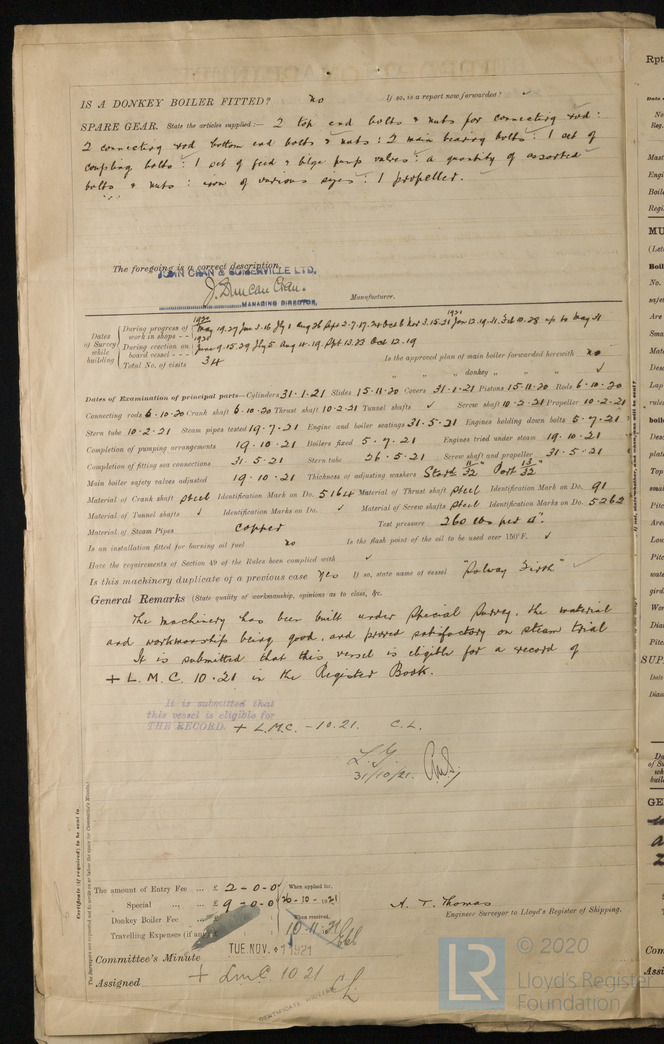 IS A DONKEY BOILER FITTED? no If so, is a report now forwarded?
SPARE GEAR. State the articles supplied:— 2 top end bolts & nuts for connecting rod:
2 connecting rod bottom end bolts & nuts: 2 main bearing bolts: 1 set of
coupling bolts: 1 set of feed & bilge pump valves: a quantity of assorted
bolts & nuts: iron of various sizes: 1 propeller.
The foregoing is a correct description,
JOHN CRAN & SOMERVILLE LTD.
J. Duncan Cran.
MANAGING DIRECTOR. Manufacturer.
Dates of Survey while building
During progress of work in shops - - 1920 May 19.27 June 2.16 July 1 Aug 26 Sept 2.7.17. Oct 6 Nov 3.15.21 1921 Jan 13.19.31. Feb 10.28 up to May 31
During erection on board vessel - - - 1921 June 9.15.29 July 5 Aug 14.19. Sept 13.23 Oct 12.19
Total No. of visits 34
Is the approved plan of main boiler forwarded herewith no
" " " donkey " " "
Dates of Examination of principal parts—Cylinders 31.1.21 Slides 15.11.20 Covers 31.1.21 Pistons 15.11.20 Rods 6.10.20
Connecting rods 6.10.20 Crank shaft 6.10.20 Thrust shaft 10.2.21 Tunnel shafts ✓ Screw shaft 10.2.21 Propeller 10.2.21
Stern tube 10.2.21 Steam pipes tested 19.7.21 Engine and boiler seatings 31.5.21 Engines holding down bolts 5.7.21
Completion of pumping arrangements 19.10.21 Boilers fixed 5.7.21 Engines tried under steam 19.10.21
Completion of fitting sea connections 31.5.21 Stern tube 26.5.21 Screw shaft and propeller 31.5.21
Main boiler safety valves adjusted 19.10.21 Thickness of adjusting washers Starb 11/32 Port 13/32
Material of Crank shaft steel Identification Mark on Do. 5164 Material of Thrust shaft steel Identification Mark on Do. 91
Material of Tunnel shafts ✓ Identification Marks on Do. ✓ Material of Screw shafts steel Identification Marks on Do. 5262
Material of Steam Pipes copper Test pressure 260 lbs per □".
Is an installation fitted for burning oil fuel no Is the flash point of the oil to be used over 150°F. ✓
Have the requirements of Section 49 of the Rules been complied with ✓
Is this machinery duplicate of a previous case Yes If so, state name of vessel "Solway Firth"
General Remarks (State quality of workmanship, opinions as to class, &c.
The machinery has been built under Special Survey, the material
and workmanship being good, and proved satisfactory on steam trial
It is submitted that this vessel is eligible for a record of
+ L.M.C. 10.21 in the Register Book.
It is submitted that
this vessel is eligible for
THE RECORD. + L.M.C. - 10.21. C.L.
31/10/21.
Certificate (if required) to be sent to
The Surveyors are requested not to write on or below the space for Committee's Minute.
The amount of Entry Fee ... £ 2-0-0 When applied for,
Special ... £ 9-0-0 20-10-1921
Donkey Boiler Fee ... £ When received,
Travelling Expenses (if any) £ 10.11.21
A. T. Thomas
Engineer Surveyor to Lloyd's Register of Shipping.
Committee's Minute TUE. NOV. 1 1921
Assigned + LMC. 10 21
© 2020
LR
Lloyd's Register
Foundation